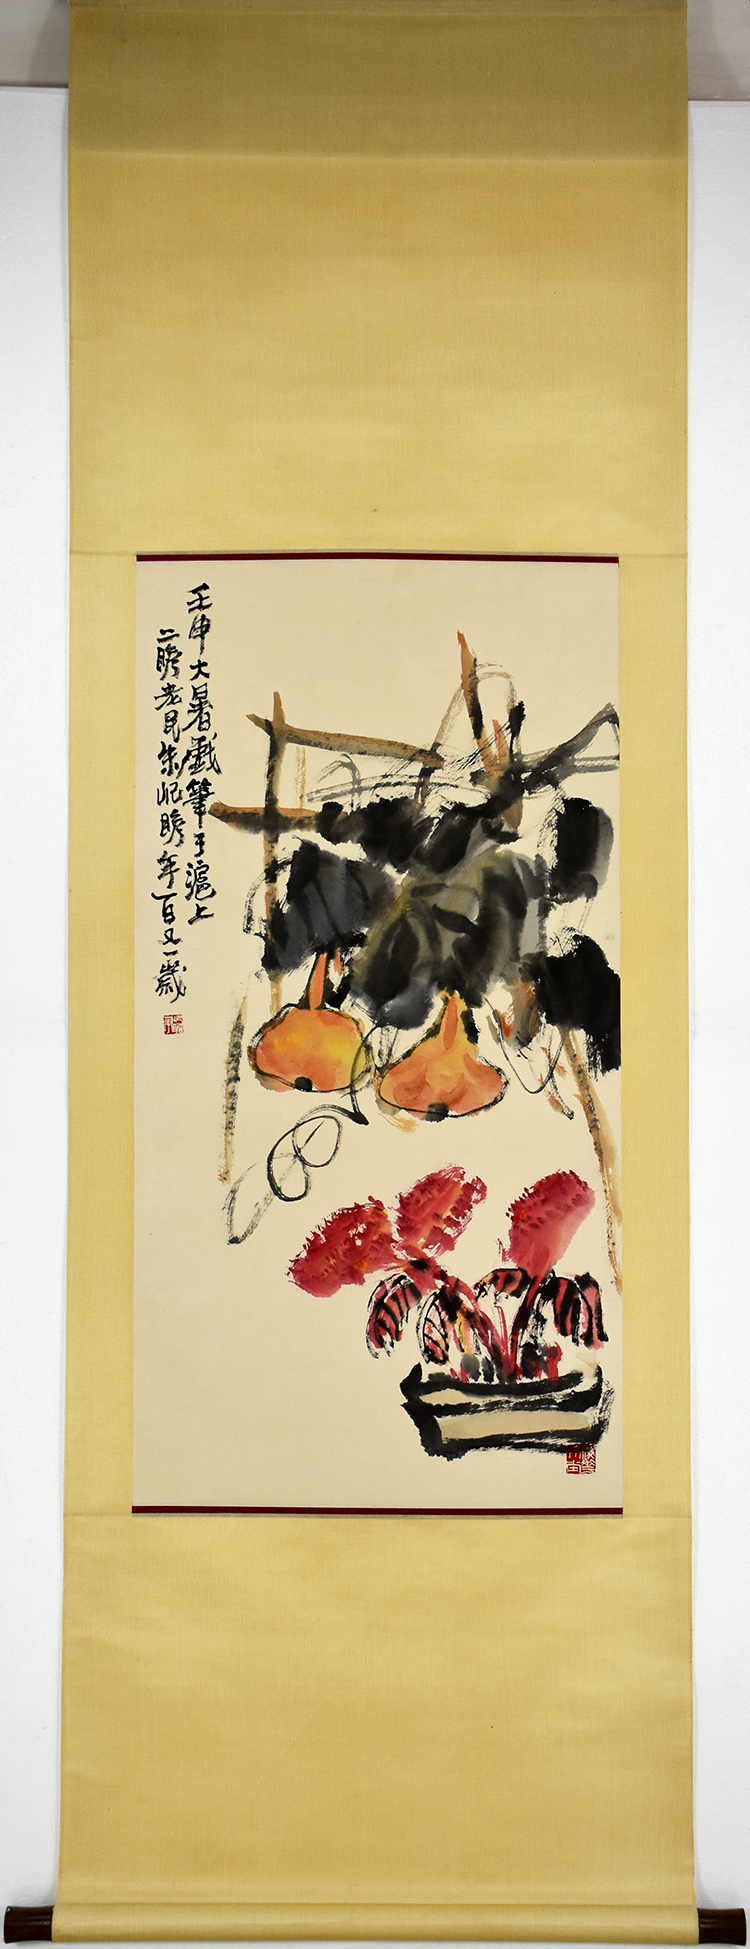 壬申大暑戲筆于滬上
二瞻老民朱屺瞻年百又一歲